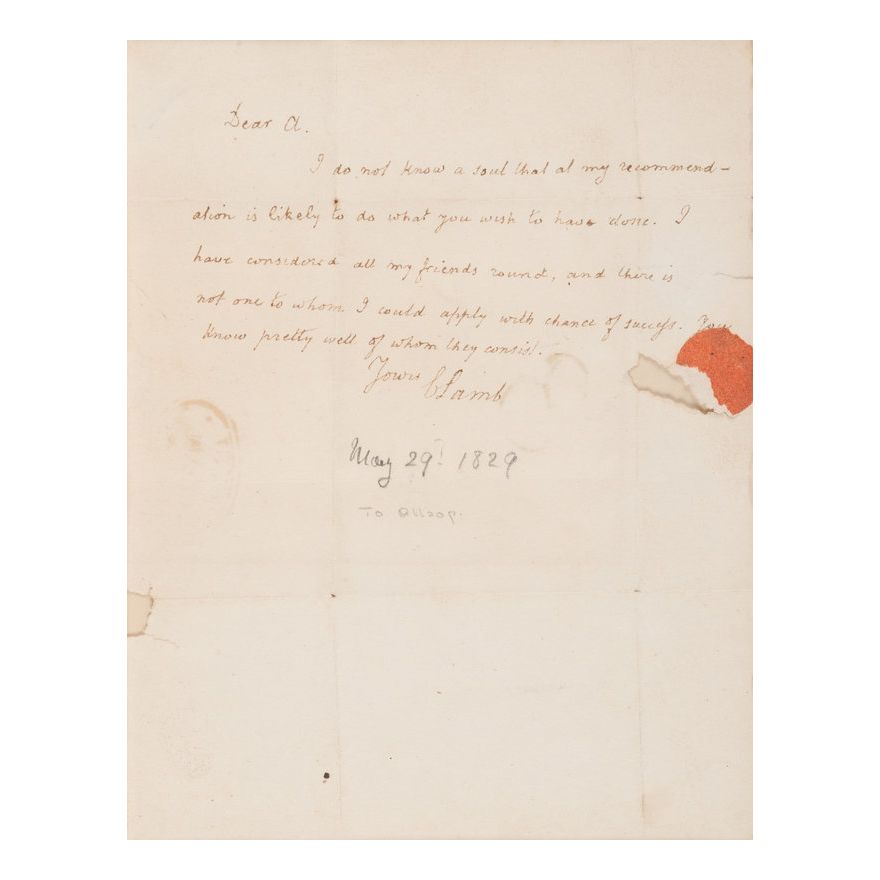 Dear A.
I do not know a soul that at my recommend-
ation is likely to do what you wish to have done. I
have considered all my friends round, and there is
not one to whom I could apply with chance of success. You
know pretty well of whom they consist.
Yours CLamb
May 29. 1829
To Allsop.